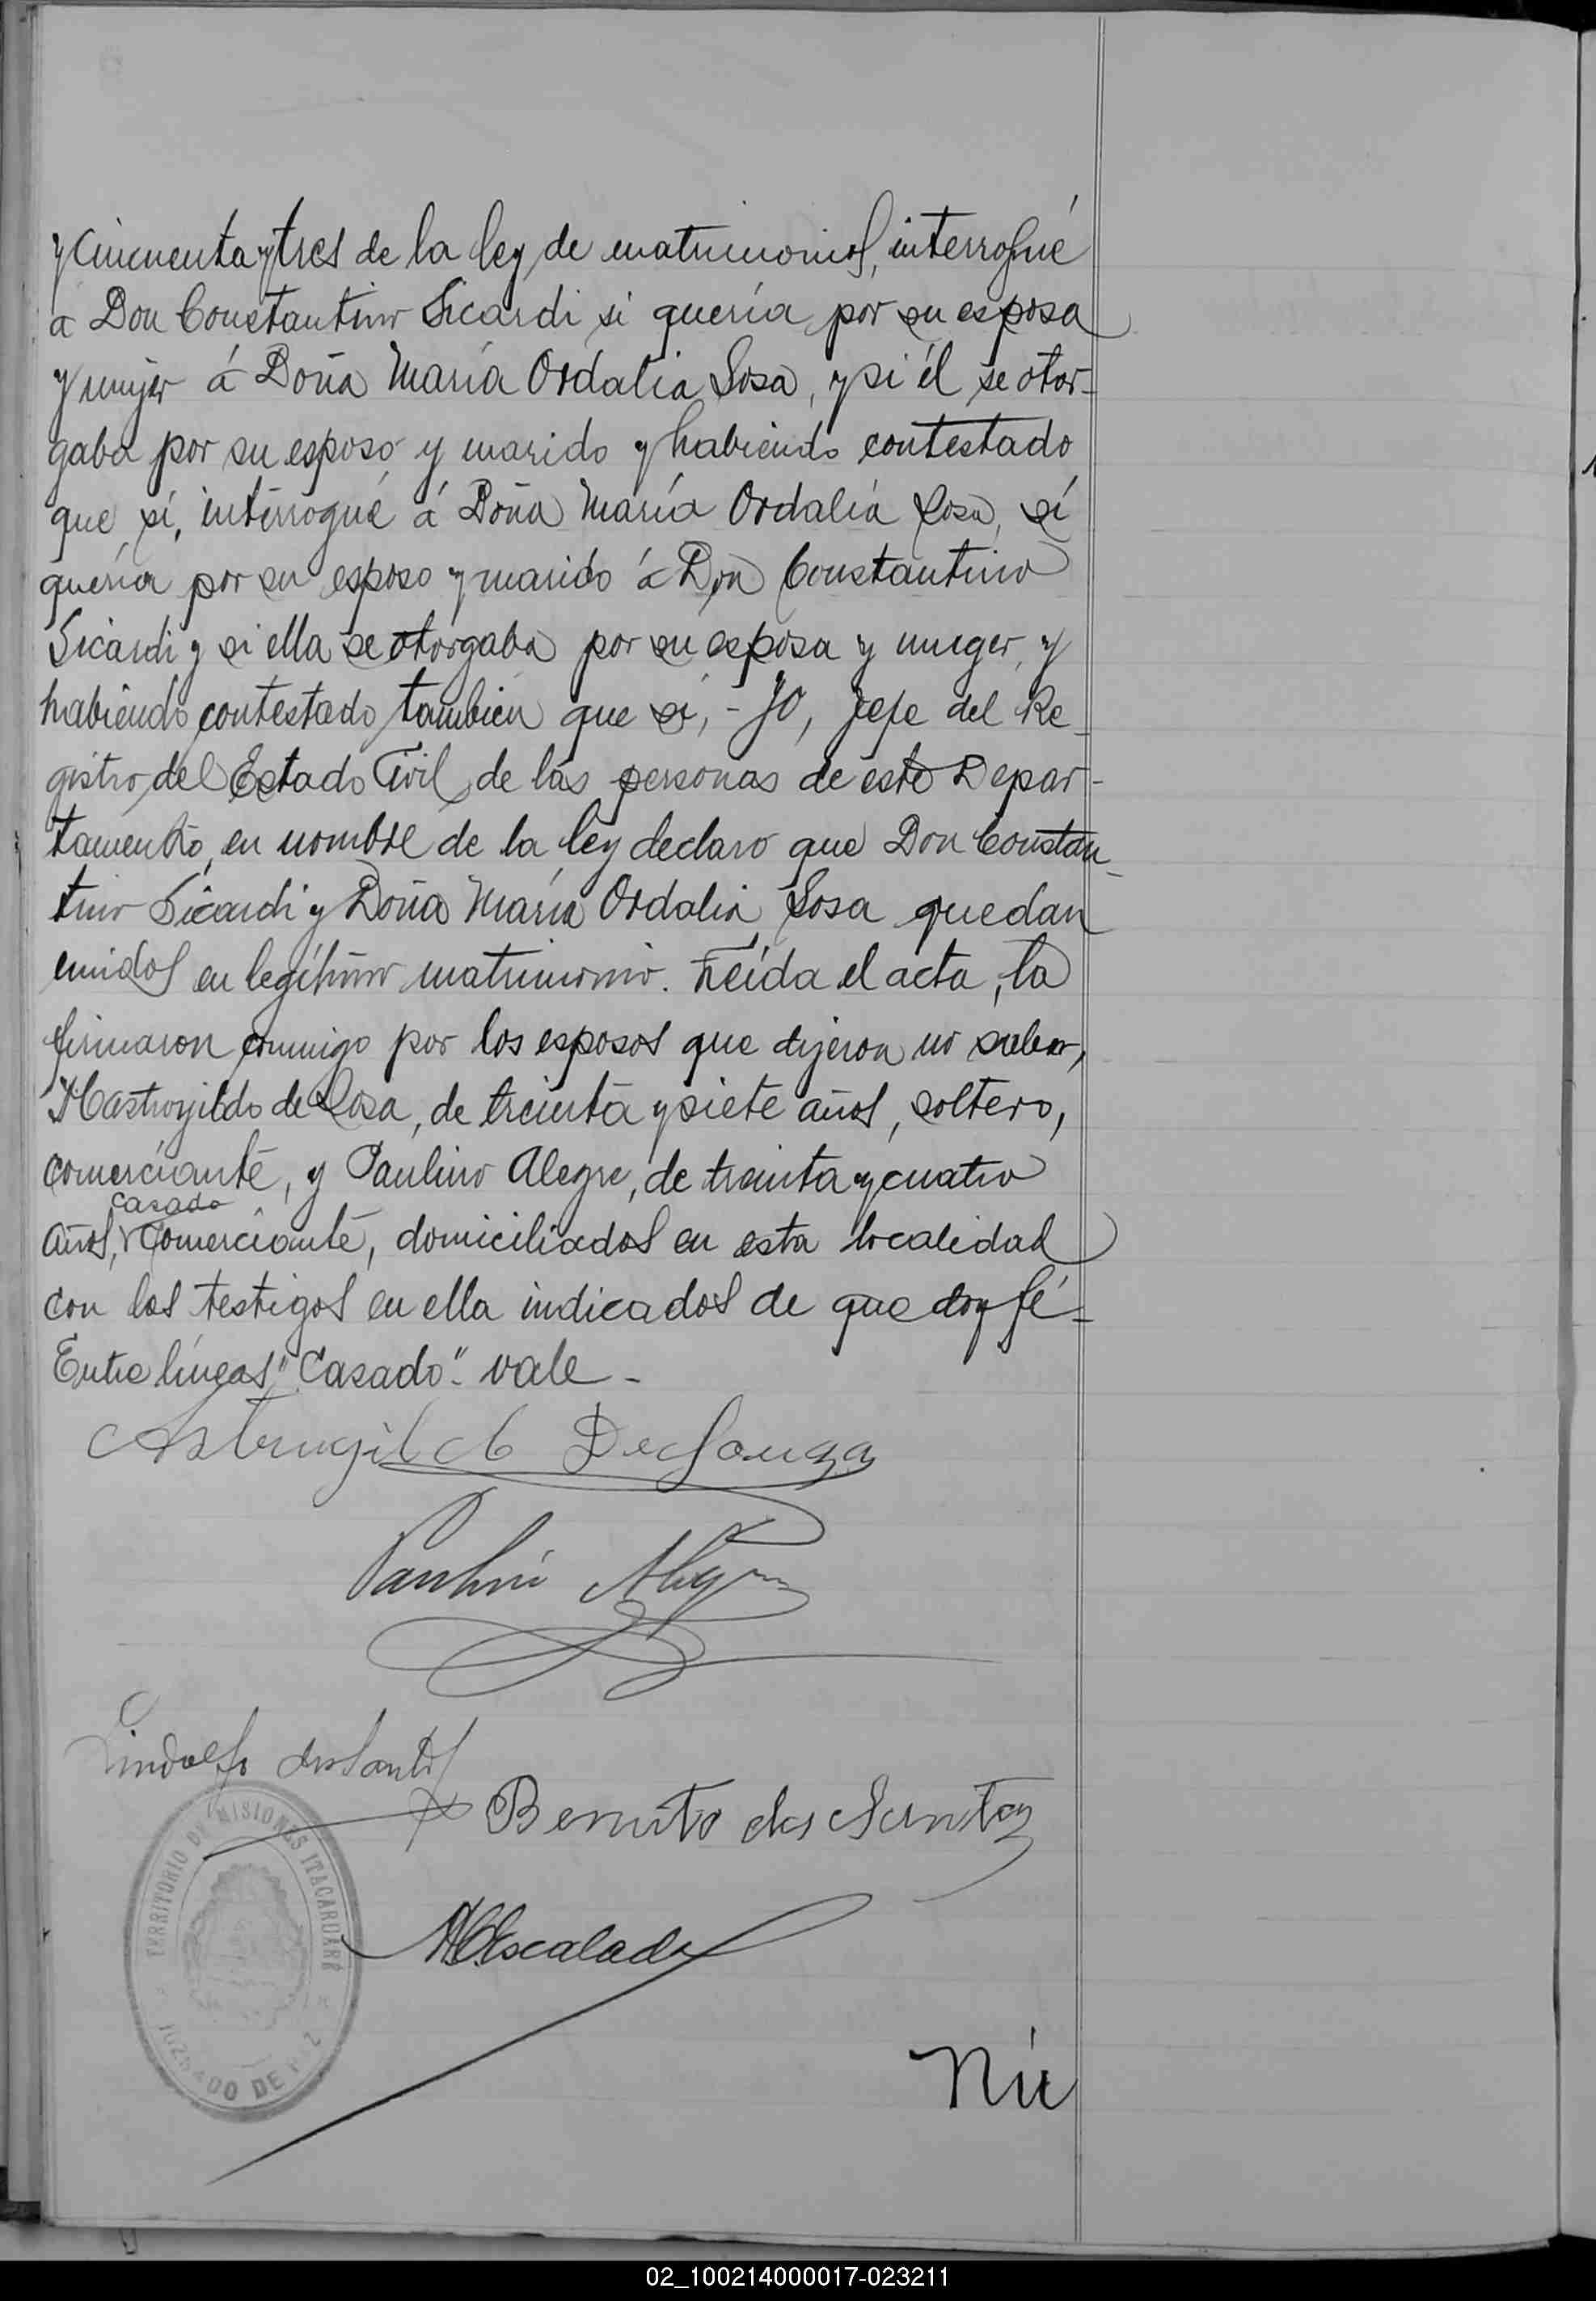 y cincuenta y tres de la ley de matrimonios, interrogué
a Don Constantino Sicardi si quería por su esposa
y mujer á Doña María Ordalia Sosa, y si él se otor-
gaba por su esposo y marido y habiendo contestado
que sí, interrogué á Doña María Ordalia Sosa, sí
quería por su esposo y marido á Don Constantino
Sicardi y si ella se otorgaba por su esposa y muger, y
habiendo contestado también que si, - Yo, Jefe del Re-
gistro del Estado Civil de las personas de este Depar-
tamento, en nombre de la ley declaro que Don Constan-
tino Sicardi y Doña María Ordalia Sosa quedan
unidos en legítimo matrimonio. Leída el acta, la
firmaron conmigo por los esposos que dijeron no saber,
de Sosa, de treinta y siete años, soltero,
comerciante, y Paulino Alegre, de treinta y cuatro
casado
años, comerciante, domiciliados en esta localidad
con los testigos en ella indicados de que doy fé-
Entre líneas "Casado" - vale -
Astrugildo De Souza
Paulino Alegre
Lindolfo dos Santos
Benito dos Santos
Escalada
TERRITORIO DE MISIONES ITACARUARÉ
JUZGADO DE PAZ
Nú
02_100214000017-023211